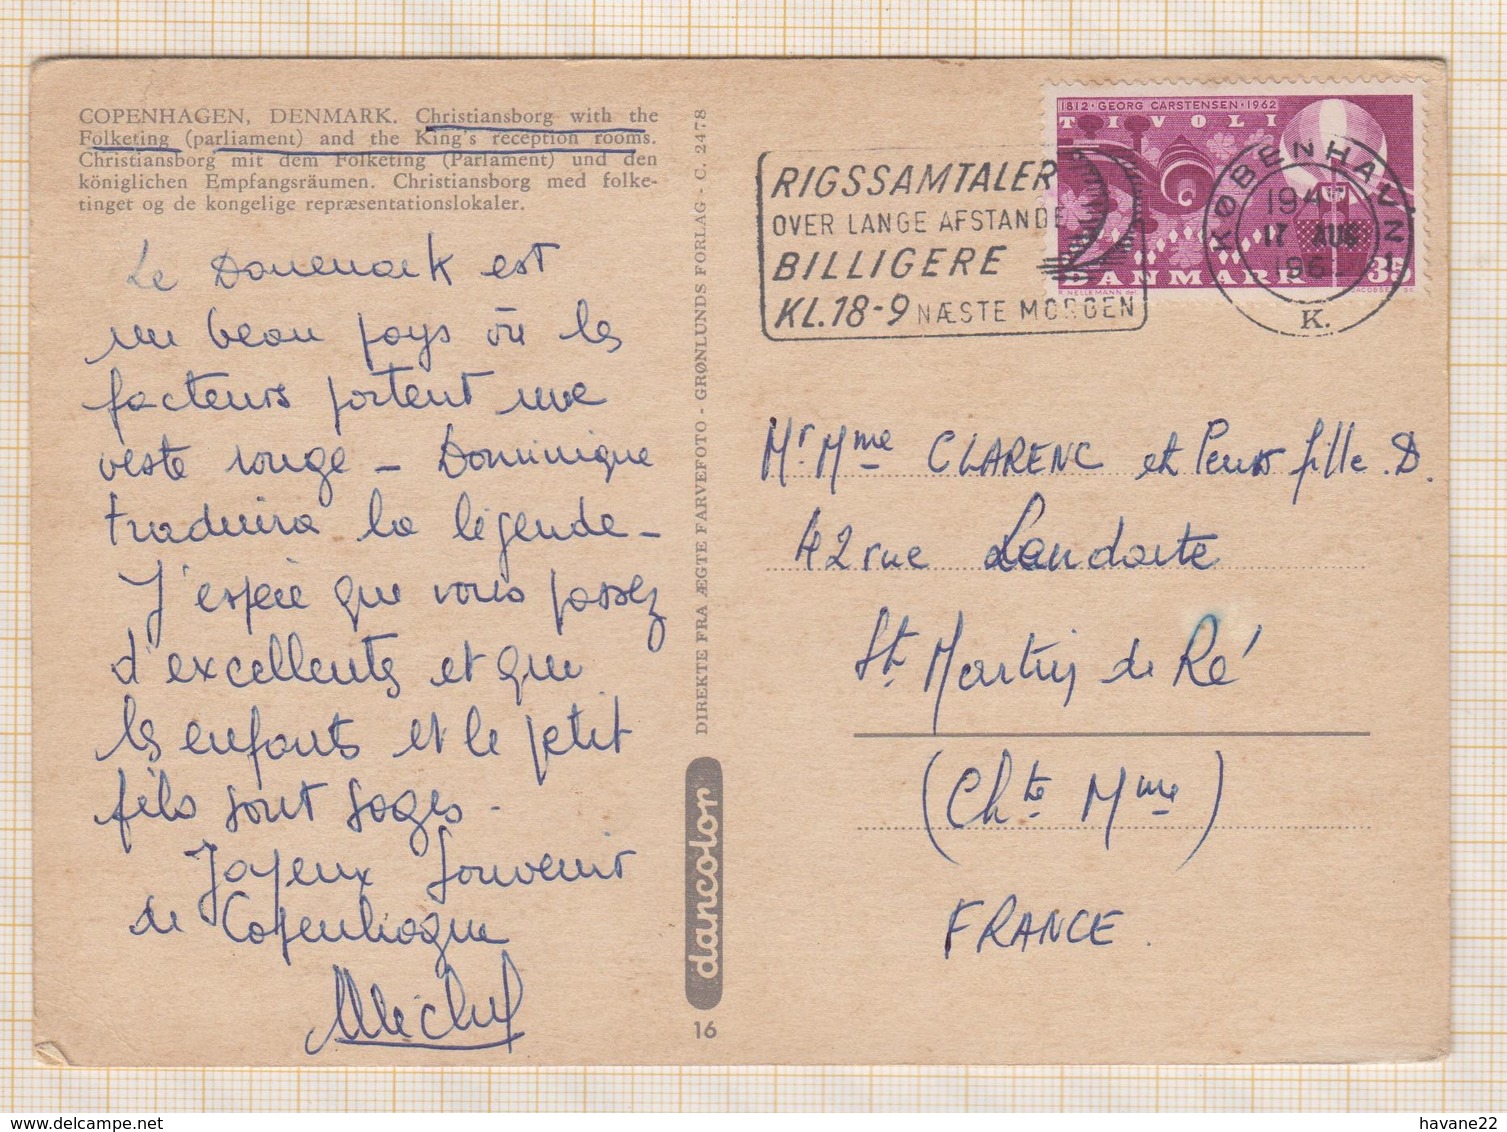 COPENHAGEN, DENMARK. Christiansborg with the
Folketing (parliament) and the King's reception rooms.
Christiansborg mit dem Folketing (Parlament) und den
königlichen Empfangsräumen. Christiansborg med folke-
tinget og de kongelige repræsentationslokaler.
Le Danemark est
un beau pays où les
facteurs portent une
veste rouge - Dominique
traduira la légende -
J'espère que vous passez
d'excellentes et que
les enfants et le petit
fils sont sages -
Joyeux Souvenir
de Copenhague
Michel
DIREKTE FRA ÆGTE FARVEFOTO - GRØNLUNDS FORLAG - C. 2478
dancolor
16
1812 · GEORG CARSTENSEN · 1962
TIVOLI
DANMARK 35
R. NELLEMANN del.
JACOBSEN sc.
RIGSSAMTALER
OVER LANGE AFSTANDE
BILLIGERE
KL.18-9 NÆSTE MORGEN
KØBENHAVN
17 AUG
K.
Mr Mme CLARENC et Leurs fille D.
42 rue Landoite
St Martin de Ré
(Chte Mme)
FRANCE.
havane22